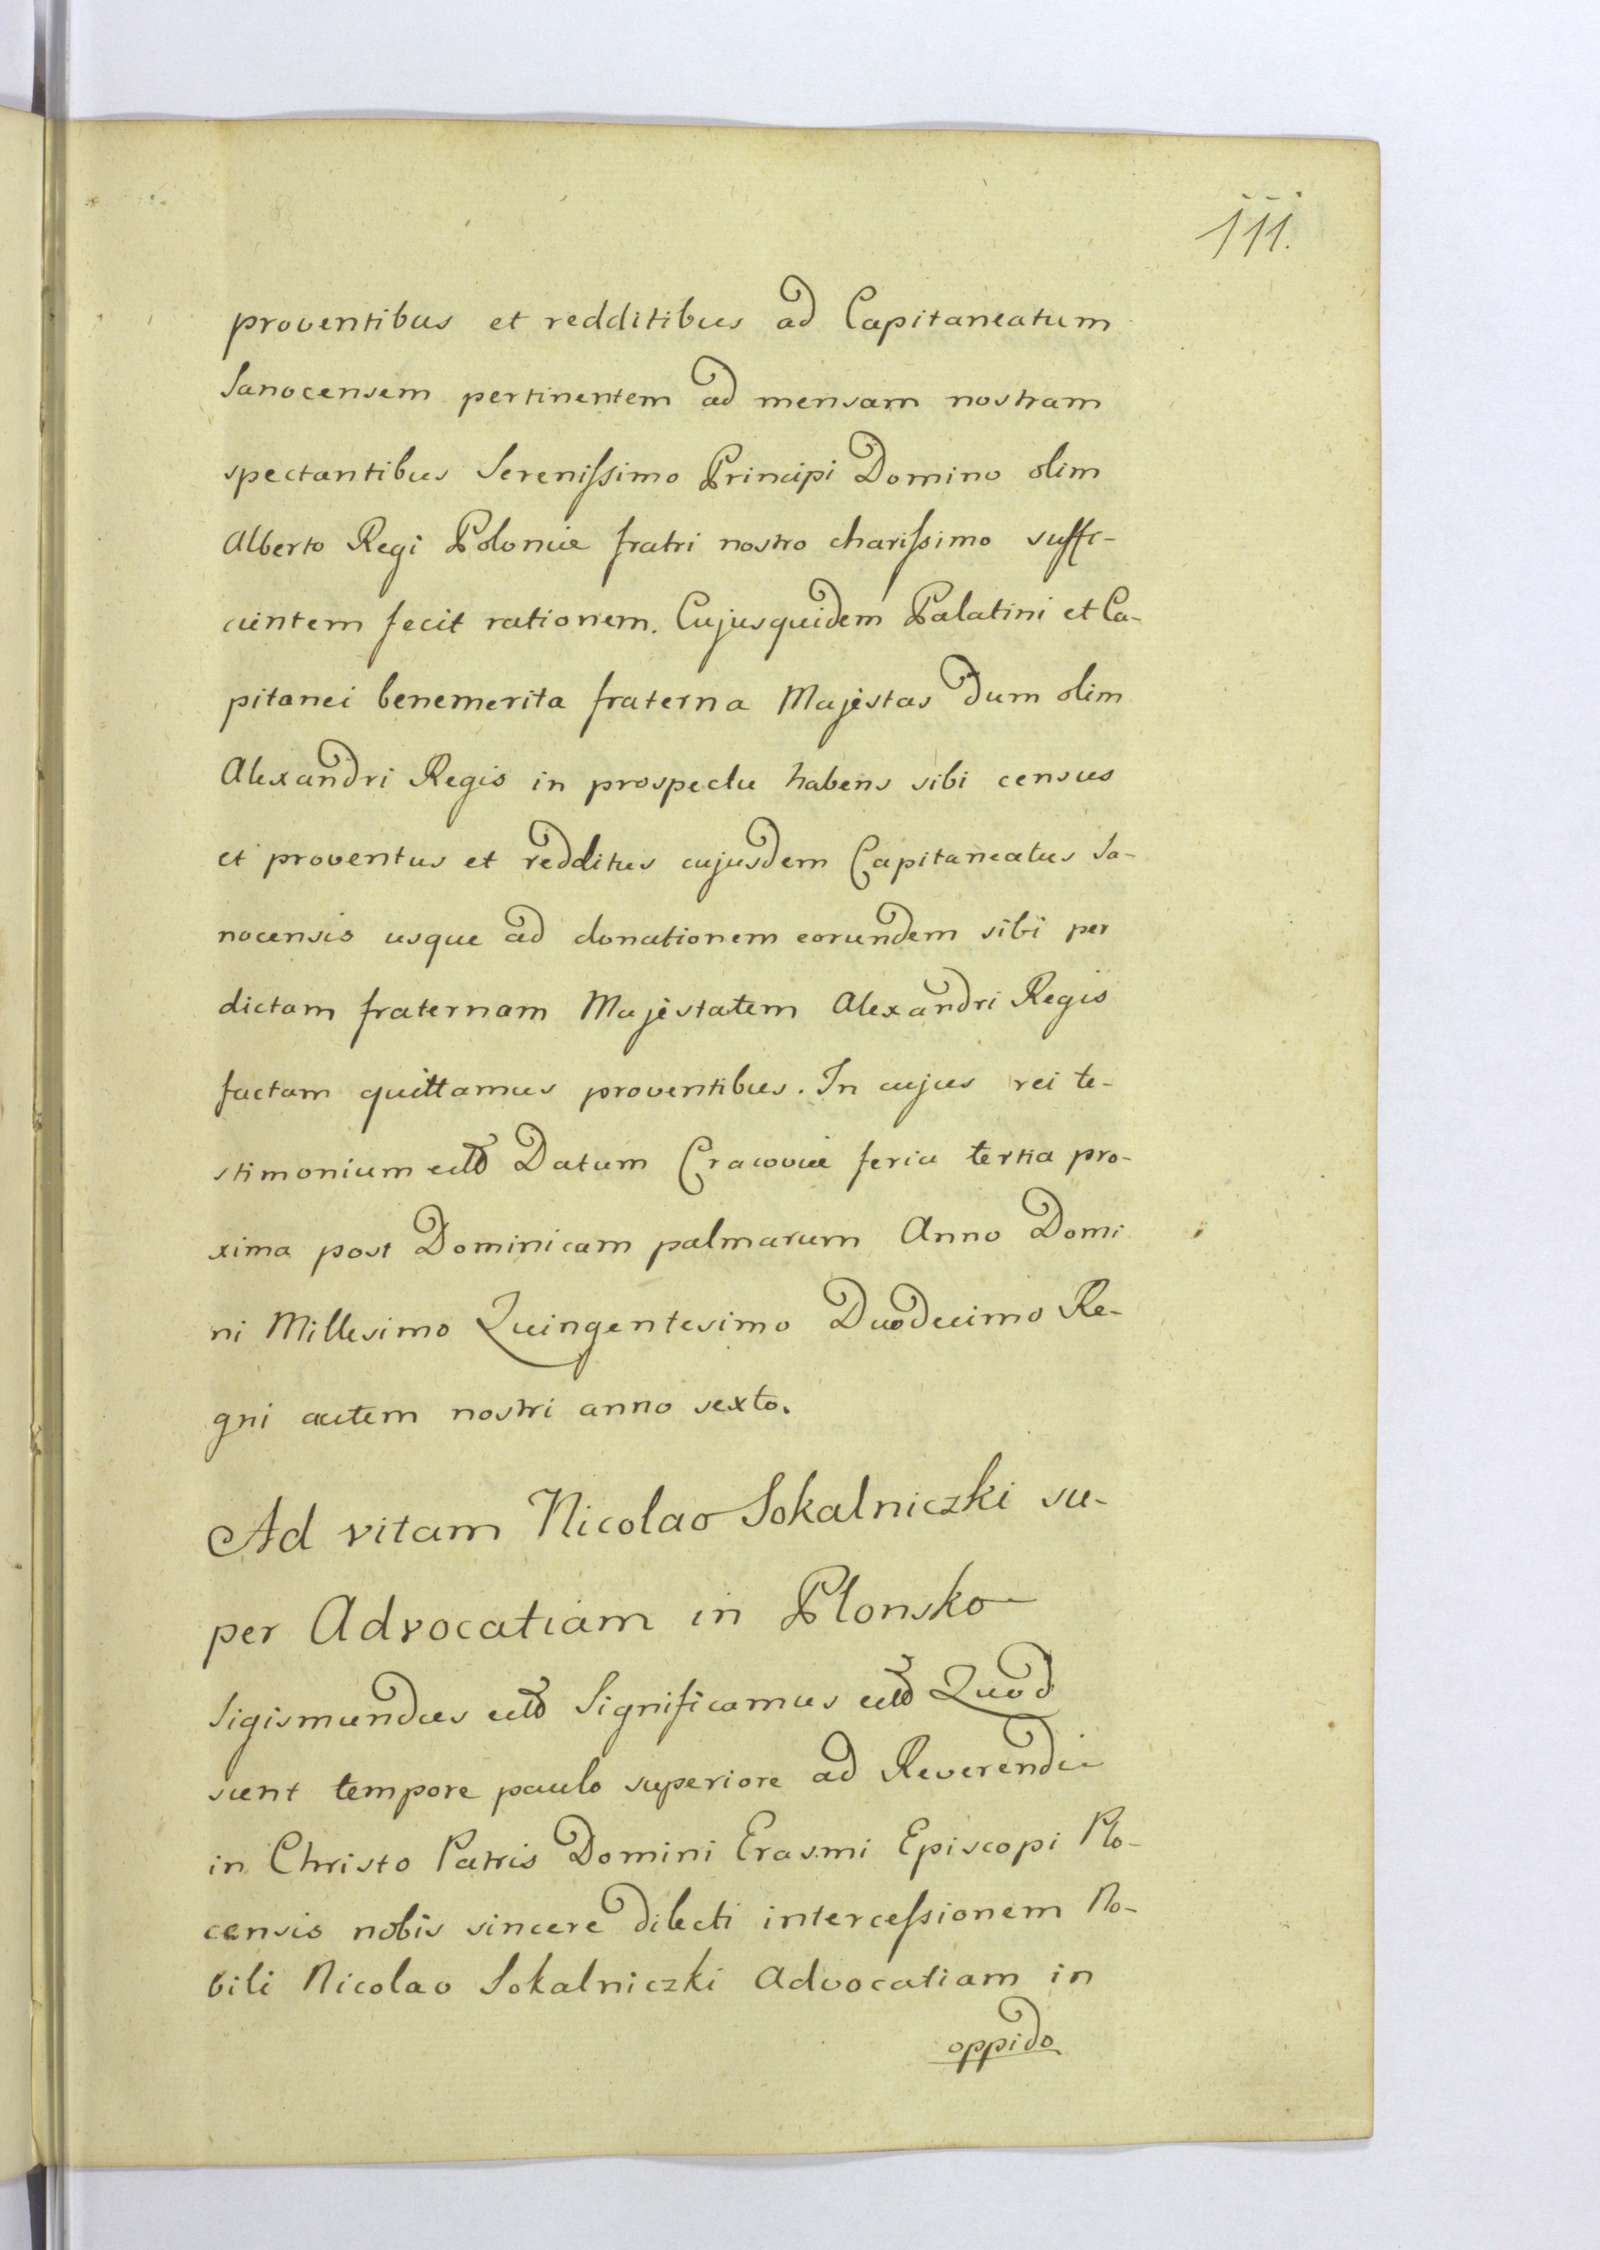 111.
proventibus et redditibus ad Capitaneatum
Sanocensem pertinentem ad mensam nostram
spectantibus Serenissimo Principi Domino olim
Alberto Regi Poloniæ fratri nostro charissimo suffi-
cientem fecit rationem. Cujusquidem Palatini et Ca-
pitanei benemerita fraterna Majestas dum olim
Alexandri Regis in prospectu habens sibi census
et proventus et redditus cujusdem Capitaneatus Sa-
nocensis usque ad donationem eorundem sibi per
dictam fraternam Majestatem Alexandri Regis
factam quittamus proventibus. In cujus rei te-
stimonium Datum Cracoviæ feria tertia pro-
xima post Dominicam palmarum Anno Domi
ni Millesimo Quingentesimo Duodecimo Re-
gni autem nostri anno sexto.
Ad vitam Nicolao Sokalniczki su-
per Advocatiam in Plonsko
Sigismundus Significamus Quod
sunt tempore paulo superiore ad Reverendi
in Christo Patris Domini Erasmi Episcopi Plo-
censis nobis sincere dilecti intercessionem No-
bili Nicolao Sokalniczki Advocatiam in
oppido